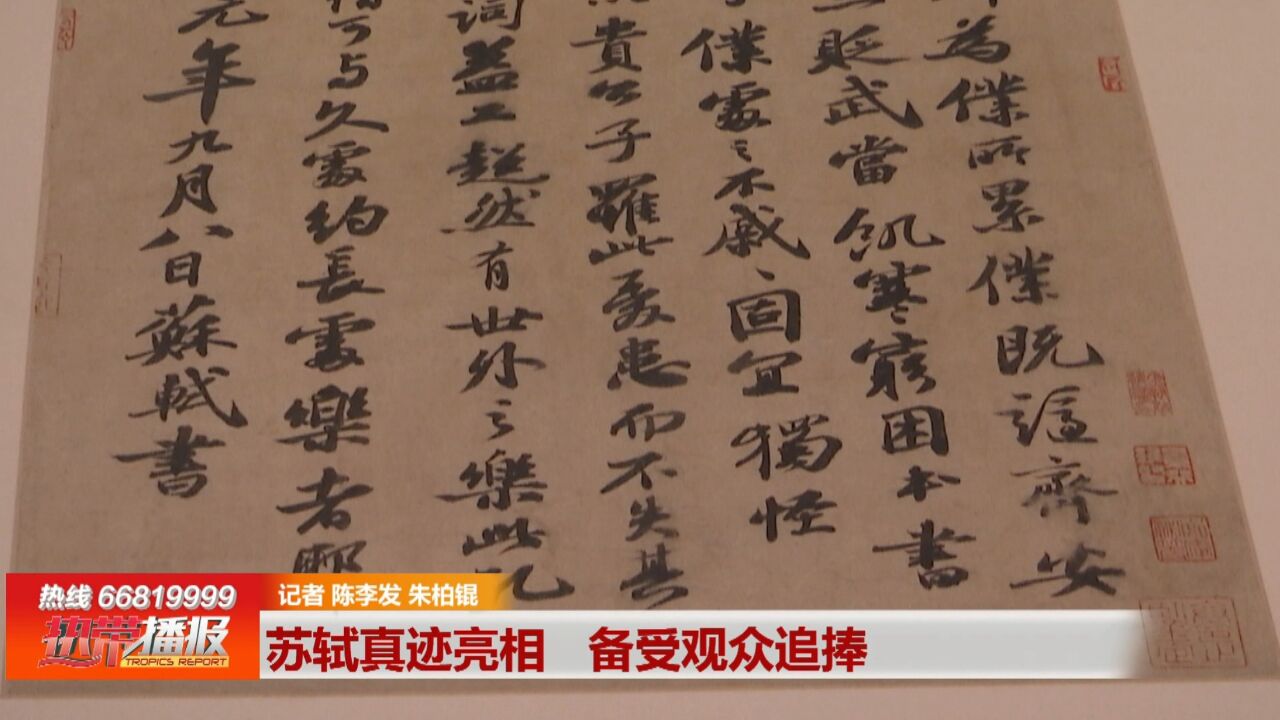 為僕所累僕既謫齊安
貶武當飢寒窮困本書
僕處〻不戚〻固宜獨怪
貴公子罹此憂患而不失其
詞益工超然有世外之樂此
可与久處約長處樂者耶
元年九月八日蘇軾書
热线 66819999
记者 陈李发 朱柏锟
热带播报
TROPICS REPORT
苏轼真迹亮相 备受观众追捧